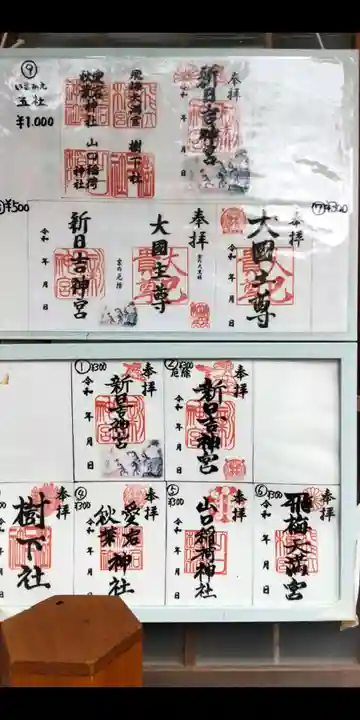 ⑨
五社
¥1.000
飛梅天満宮
樹下社
秋葉神社
山口稲荷神社
奉拝
新日吉神宮
令和 年 月 日
¥500
新日吉神宮
令和 年 月 日
奉拝
大國主尊
令和 年 月 日
⑦
奉拝
大國主尊
令和 年 月 日
① ¥300
奉拝
新日吉神宮
令和 年 月 日
② ¥300
厄除
奉拝
新日吉神宮
令和 年 月 日
奉拝
樹下社
④ ¥300
奉拝
愛宕
秋葉 神社
令和 年 月 日
⑤ ¥300
奉拝
山口稲荷神社
令和 年 月 日
⑥ ¥300
奉拝
飛梅天満宮
令和 年 月 日